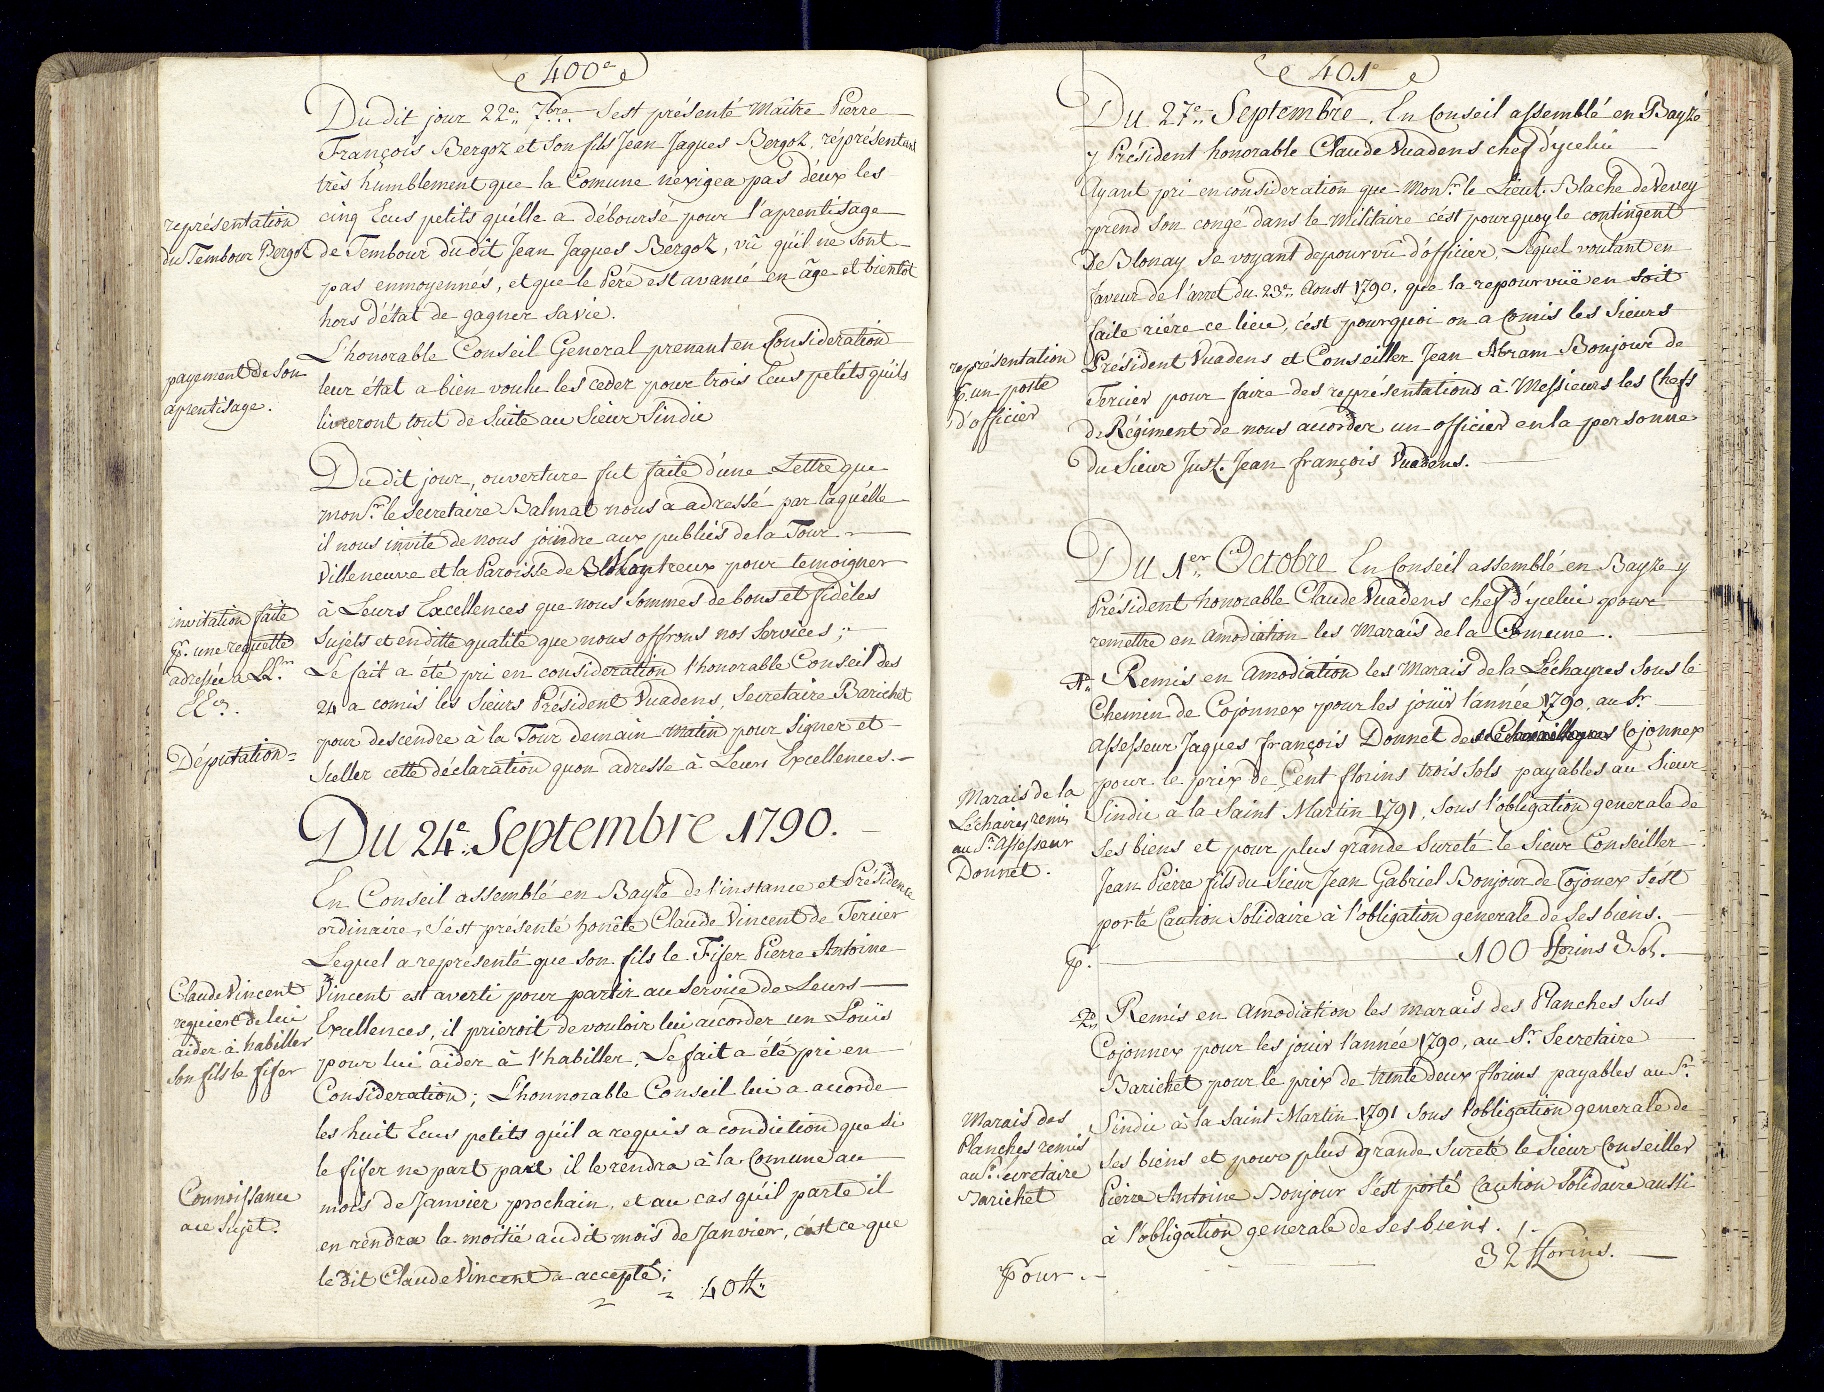 400e
Du dit jour 22e 7bre S'est présenté Maitre Pierre
François Bergoz et Son fils Jean Jaques Bergoz, réprésentant
très humblement que la Comune n'exigea pas d'éux les
représentation
cinq Ecus petits qu'elle a déboursé pour l'aprentisage
du Tembour Bergoz
de Tembour du dit Jean Jaques Bergoz, vû qu'il ne sont
pas enmoyennés, et que le Pére est avancé en âge et bientôt
hors d'état de gagner Sa vie.
L'honorable Conseil General prenant en Consideration
payement de Son
leur état a bien voulu les ceder pour trois Ecus petits qu'ils
aprentisage.
livreront tout de Suite au Sieur Sindic
Du dit jour, ouverture fut faite d'une Lettre que
Monsr. le Secretaire Balmat nous a adressé par laquélle
il nous invite de nous joindre aux publics de la Tour
Villeneuve et la Paroisse de Montreux pour temoigner
invitation faite
à Leurs Excellences que nous Sommes de bons et fidèles
pr. une requette
Sujets et en ditte qualité que nous offrons nos Services;
adressée a LL.
Le fait a été pri en consideration l'honorable Conseil des
EEces.
24 a comis les Sieurs Président Vuadens, Secretaire Barichet
Députation
pour descendre à la Tour demain matin pour Signer et
Sceller cette déclaration qu'on adresse à Leurs Excellences.
Du 24e Septembre 1790.
En Conseil assemblé en Bayse de l'instance et Présidence
ordinaire, S'ést présenté honête Claude Vincent de Tercier
Lequel a représenté que Son fils le Fifer Pierre Antoine
Claude Vincent
Vincent est averti pour partir au Service de Leurs
requiert de lui
Excellences, il prieroit de vouloir lui accorder un Louis
aider à habiller
pour lui aider à l'habiller. Le fait a été pri en
Son fils le fifer
Consideration; L'honnorable Conseil lui a accordé
les huit Ecus petits qu'il a requis a condiction que Si
le fifer ne part pas il le rendra à la Comune au
Connoissance
mois de Janvier prochain, et au cas qu'il parte il
au Sujet.
en rendra la moitié audit mois de Janvier, c'ést ce que
le dit Claude Vincent a accepté;
40 ff.
401e
Du 27e Septembre. En Conseil assemblé en Bayse
y Président honorable Claude Vuadens chef d'ycelui
Ayant pri en consideration que Monsr. le Lieut. Blache de Vevey
prend Son congé dans le Militaire c'ést pourquoy le contingent
De Blonay Se voyant depourvû d'officier, Lequel voulant en
faveur de l'arret du 23e Aoust 1790, que la repourvuë en Soit
faite riére ce lieu, c'ést pourquoi on a Comis les Sieurs
représentation
Président Vuadens et Conseiller Jean Abram Bonjour de
pr. un poste
Tercier pour faire des représentations à Messieurs les Chefs
D'officier
de Régiment de nous accorder un officier en la personne
du Sieur Just. Jean françois Vuadens.
Du 1er Octobre En Conseil assemblé en Bayse y
Président honorable Claude Vuadens chef d'ycelui pour
remettre en Amodiation les Marais de la Comune.
1o Remis en Amodiation les Marais de la Lechayres Sous le
Chemin de Cojonnex pour les jouir l'année 1790, au Sr.
Assesseur Jaques françois Donnet de Cojonnex
Marais de la
pour le prix de Cent florins trois Sols payables au Sieur
Léchaires remis
Sindic à la Saint Martin 1791, Sous l'obligation generale de
au Sr. Assesseur
Ses biens et pour plus grande Sureté le Sieur Conseiller
Donnet.
Jean Pierre fils du Sieur Jean Gabriel Bonjour de Cojonex S'ést
porté Caution Solidaire à l'obligation generale de Ses biens.
pr. 100 florins 3 Sols.
2o Remis en Amodiation les Marais des Planches Sus
Cojonnex pour les jouir l'année 1790, au Sr. Secretaire
Barichet pour le prix de trente deux florins payables au Sr.
Marais des
Sindic à la Saint Martin 1791 Sous l'obligation generale de
Planches remis
Ses biens et pour plus grande Sureté le Sieur Conseiller
au Sr. Secretaire
Pierre Antoine Bonjour S'est porté Caution Solidaire aussi
Barichet
à l'obligation generale de Ses biens.
Pour. 32 florins.